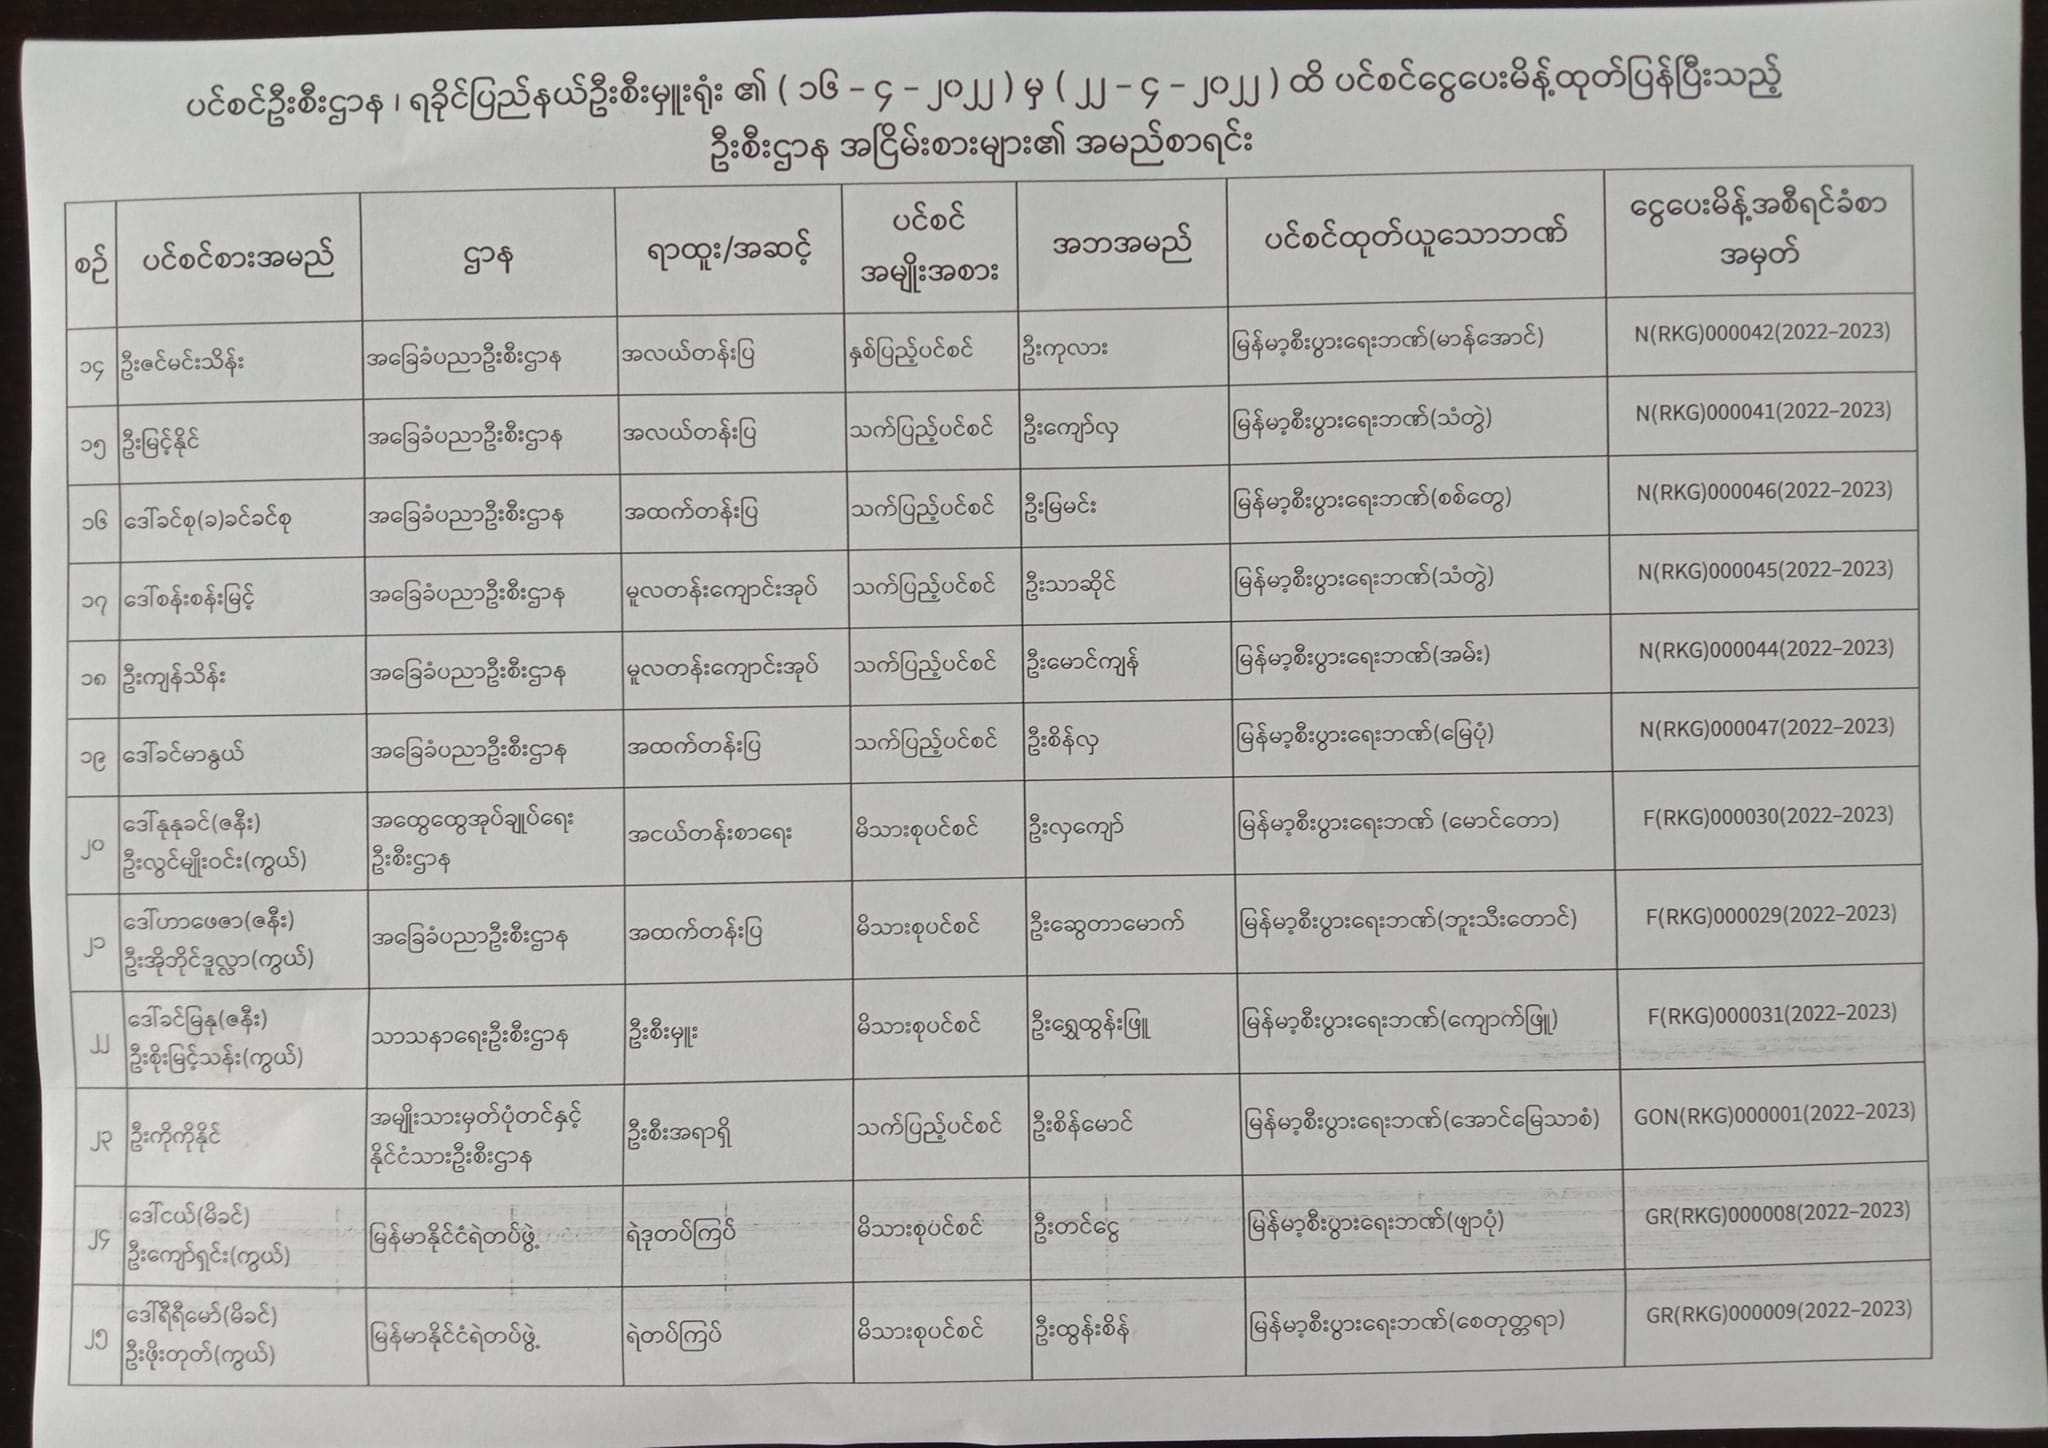 ပင်စင်ဦးစီးဌာန ၊ ရခိုင်ပြည်နယ်ဦးစီးမှူးရုံး ၏ ( ၁၆ – ၄ – ၂၀၂၂ ) မှ ( ၂၂ – ၄ – ၂၀၂၂ ) ထိ ပင်စင်ငွေပေးမိန့်ထုတ်ပြန်ပြီးသည့်
ဦးစီးဌာန အငြိမ်းစားများ၏ အမည်စာရင်း
စဉ် ပင်စင်စားအမည် ဌာန ရာထူး/အဆင့် ပင်စင် အမျိုးအစား အဘအမည် ပင်စင်ထုတ်ယူသောဘဏ် ငွေပေးမိန့်အစီရင်ခံစာ အမှတ်
၁၄ ဦးဇင်မင်းသိန်း အခြေခံပညာဦးစီးဌာန အလယ်တန်းပြ နှစ်ပြည့်ပင်စင် ဦးကုလား မြန်မာ့စီးပွားရေးဘဏ်(မာန်အောင်) N(RKG)000042(2022–2023)
၁၅ ဦးမြင့်နိုင် အခြေခံပညာဦးစီးဌာန အလယ်တန်းပြ သက်ပြည့်ပင်စင် ဦးကျော်လှ မြန်မာ့စီးပွားရေးဘဏ်(သံတွဲ) N(RKG)000041(2022–2023)
၁၆ ဒေါ်ခင်စု(ခ)ခင်ခင်စု အခြေခံပညာဦးစီးဌာန အထက်တန်းပြ သက်ပြည့်ပင်စင် ဦးမြမင်း မြန်မာ့စီးပွားရေးဘဏ်(စစ်တွေ) N(RKG)000046(2022–2023)
၁၇ ဒေါ်စန်းစန်းမြင့် အခြေခံပညာဦးစီးဌာန မူလတန်းကျောင်းအုပ် သက်ပြည့်ပင်စင် ဦးသာဆိုင် မြန်မာ့စီးပွားရေးဘဏ်(သံတွဲ) N(RKG)000045(2022–2023)
၁၈ ဦးကျန်သိန်း အခြေခံပညာဦးစီးဌာန မူလတန်းကျောင်းအုပ် သက်ပြည့်ပင်စင် ဦးမောင်ကျန် မြန်မာ့စီးပွားရေးဘဏ်(အမ်း) N(RKG)000044(2022–2023)
၁၉ ဒေါ်ခင်မာနွယ် အခြေခံပညာဦးစီးဌာန အထက်တန်းပြ သက်ပြည့်ပင်စင် ဦးစိန်လှ မြန်မာ့စီးပွားရေးဘဏ်(မြေပုံ) N(RKG)000047(2022–2023)
၂၀ ဒေါ်နုနုခင်(ဇနီး) ဦးလွင်မျိုးဝင်း(ကွယ်) အထွေထွေအုပ်ချုပ်ရေး ဦးစီးဌာန အငယ်တန်းစာရေး မိသားစုပင်စင် ဦးလှကျော် မြန်မာ့စီးပွားရေးဘဏ် (မောင်တော) F(RKG)000030(2022–2023)
၂၁ ဒေါ်ဟာဖေဇာ(ဇနီး) ဦးအိုဘိုင်ဒူလ္လာ(ကွယ်) အခြေခံပညာဦးစီးဌာန အထက်တန်းပြ မိသားစုပင်စင် ဦးဆွေတာမောက် မြန်မာ့စီးပွားရေးဘဏ်(ဘူးသီးတောင်) F(RKG)000029(2022–2023)
၂၂ ဒေါ်ခင်မြနု(ဇနီး) ဦးစိုးမြင့်သန်း(ကွယ်) သာသနာရေးဦးစီးဌာန ဦးစီးမှူး မိသားစုပင်စင် ဦးရွှေထွန်းဖြူ မြန်မာ့စီးပွားရေးဘဏ်(ကျောက်ဖြူ) F(RKG)000031(2022–2023)
၂၃ ဦးကိုကိုနိုင် အမျိုးသားမှတ်ပုံတင်နှင့် နိုင်ငံသားဦးစီးဌာန ဦးစီးအရာရှိ သက်ပြည့်ပင်စင် ဦးစိန်မောင် မြန်မာ့စီးပွားရေးဘဏ်(အောင်မြေသာစံ) GON(RKG)000001(2022–2023)
၂၄ ဒေါ်ငယ်(မိခင်) ဦးကျော်ရှင်း(ကွယ်) မြန်မာနိုင်ငံရဲတပ်ဖွဲ့ ရဲဒုတပ်ကြပ် မိသားစုပင်စင် ဦးတင်ငွေ မြန်မာ့စီးပွားရေးဘဏ်(ဖျာပုံ) GR(RKG)000008(2022–2023)
၂၅ ဒေါ်ရီရီမော်(မိခင်) ဦးဖိုးတုတ်(ကွယ်) မြန်မာနိုင်ငံရဲတပ်ဖွဲ့ ရဲတပ်ကြပ် မိသားစုပင်စင် ဦးထွန်းစိန် မြန်မာ့စီးပွားရေးဘဏ်(စေတုတ္တရာ) GR(RKG)000009(2022–2023)